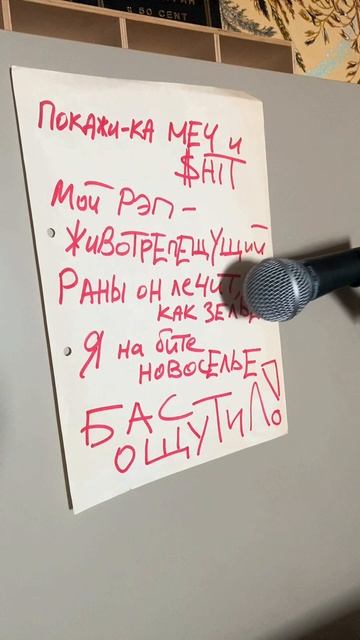 50 CENT
ПОКАЖИ-КА МЕЧ И
$HIT
Мой РЭП -
ЖИВОТРЕПЕЩУЩИЙ
РАНЫ ОН ЛЕЧИТ,
КАК
Я на бите
НОВОСЕЛЬЕ
БАСТ
ОЩУТИЛ!